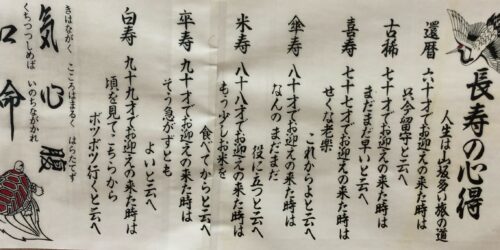 長寿の心得
人生は山坂多い旅の道
還暦 六十才でお迎えの来た時は
只今留守と云へ
古稀 七十才でお迎えの来た時は
まだまだ早いと云へ
喜寿 七十七才でお迎えの来た時は
せくな老楽
これからよと云へ
傘寿 八十才でお迎えの来た時は
なんのまだまだ
役に立つと云へ
米寿 八十八才でお迎えの来た時は
もう少しお米を
食べてからと云へ
卒寿 九十才でお迎えの来た時は
そう急がずとも
よいと云へ
白寿 九十九才でお迎えの来た時は
頃を見てこちらから
ボツボツ行くと云へ
きはながく こころはまるく はらたてず
くちつつしめば いのちながかれ
気 心 腹
口 命